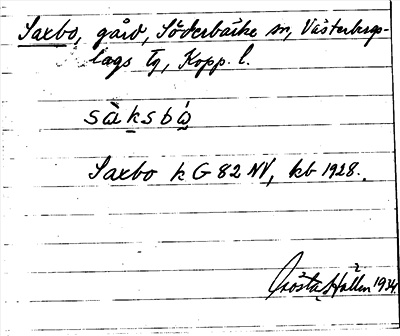 Saxbo, gård, Söderbärke sn, Västerbergs-
lags tg, Kopp. l.
sàksbó̤
Saxbo k G 82 NV, kb 1928.
Gösta Hallén 1934.